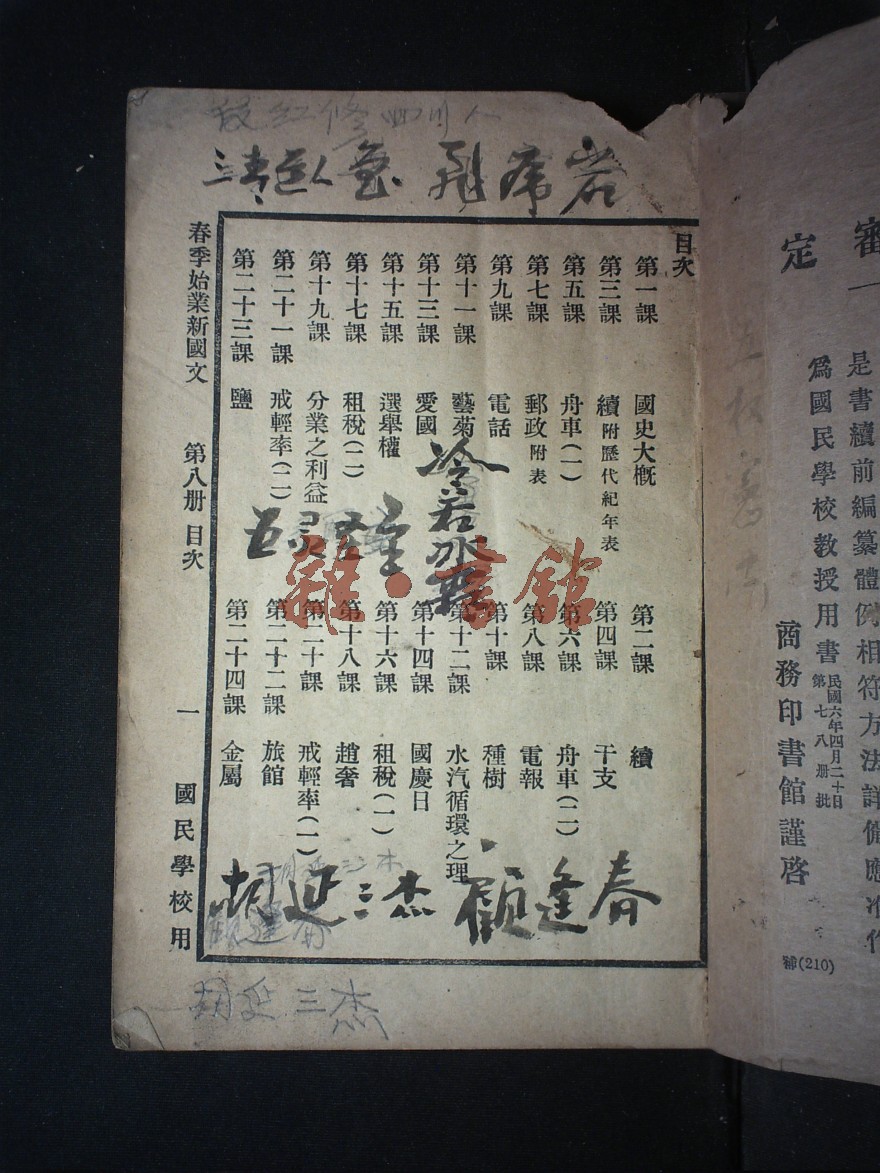 審定
是書續前編纂體例相符方法詳備應准作
爲國民學校教授用書
民國六年四月二十日
第七八册批
商務印書館謹啓
(210)
目次
第一課 國史大概
第二課 續
第三課 續附歷代紀年表
第四課 干支
第五課 舟車(一)
第六課 舟車(二)
第七課 郵政附表
第八課 電報
第九課 電話
第十課 種樹
第十一課 藝菊
第十二課 水汽循環之理
第十三課 愛國
第十四課 國慶日
第十五課 選舉權
第十六課 租稅(一)
第十七課 租稅(二)
第十八課 趙奢
第十九課 分業之利益
第二十課 戒輕率(一)
第二十一課 戒輕率(二)
第二十二課 旅館
第二十三課 鹽
第二十四課 金屬
春季始業新國文 第八册 目次 一 國民學校用
四川人
冷若冰霜
顧逢春
胡延三杰
胡延三杰
雜·書館